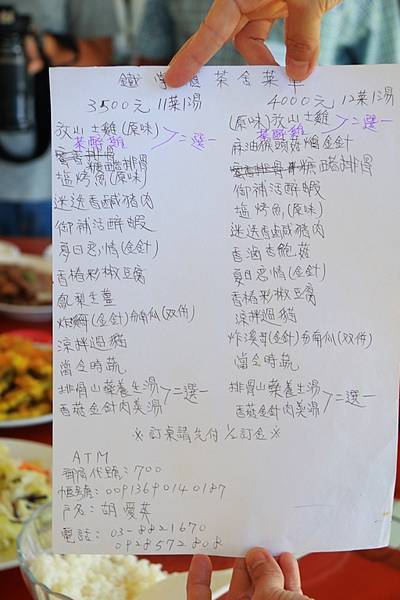 鐵 茶舍菜單
3500元 11菜1湯
放山土雞(原味)
茶醉雞 >二選一
糖醋排骨
塩烤魚(原味)
迷迭香鹹豬肉
御補活醉蝦
夏日戀情(金針)
香椿彩椒豆腐
鳳梨生薑
炸粿(金針)南瓜(双併)
涼拌過貓
當令時蔬
排骨山藥養生湯
香菇金針肉羹湯 >二選一
4000元 12菜1湯
(原味)放山土雞
茶醉雞 >二選一
麻油猴頭菇燜金針
糖醋排骨
御補活醉蝦
塩烤魚(原味)
迷迭香鹹豬肉
香滷杏鮑菇
夏日戀情(金針)
香椿彩椒豆腐
涼拌過貓
炸溪哥(金針)南瓜(双併)
當令時蔬
排骨山藥養生湯
香菇金針肉羹湯 >二選一
※訂桌請先付1/2訂金※
ATM
郵局代號:700
帳號:00913690140187
戶名:胡愛英
電話:03-8821670
0928572808